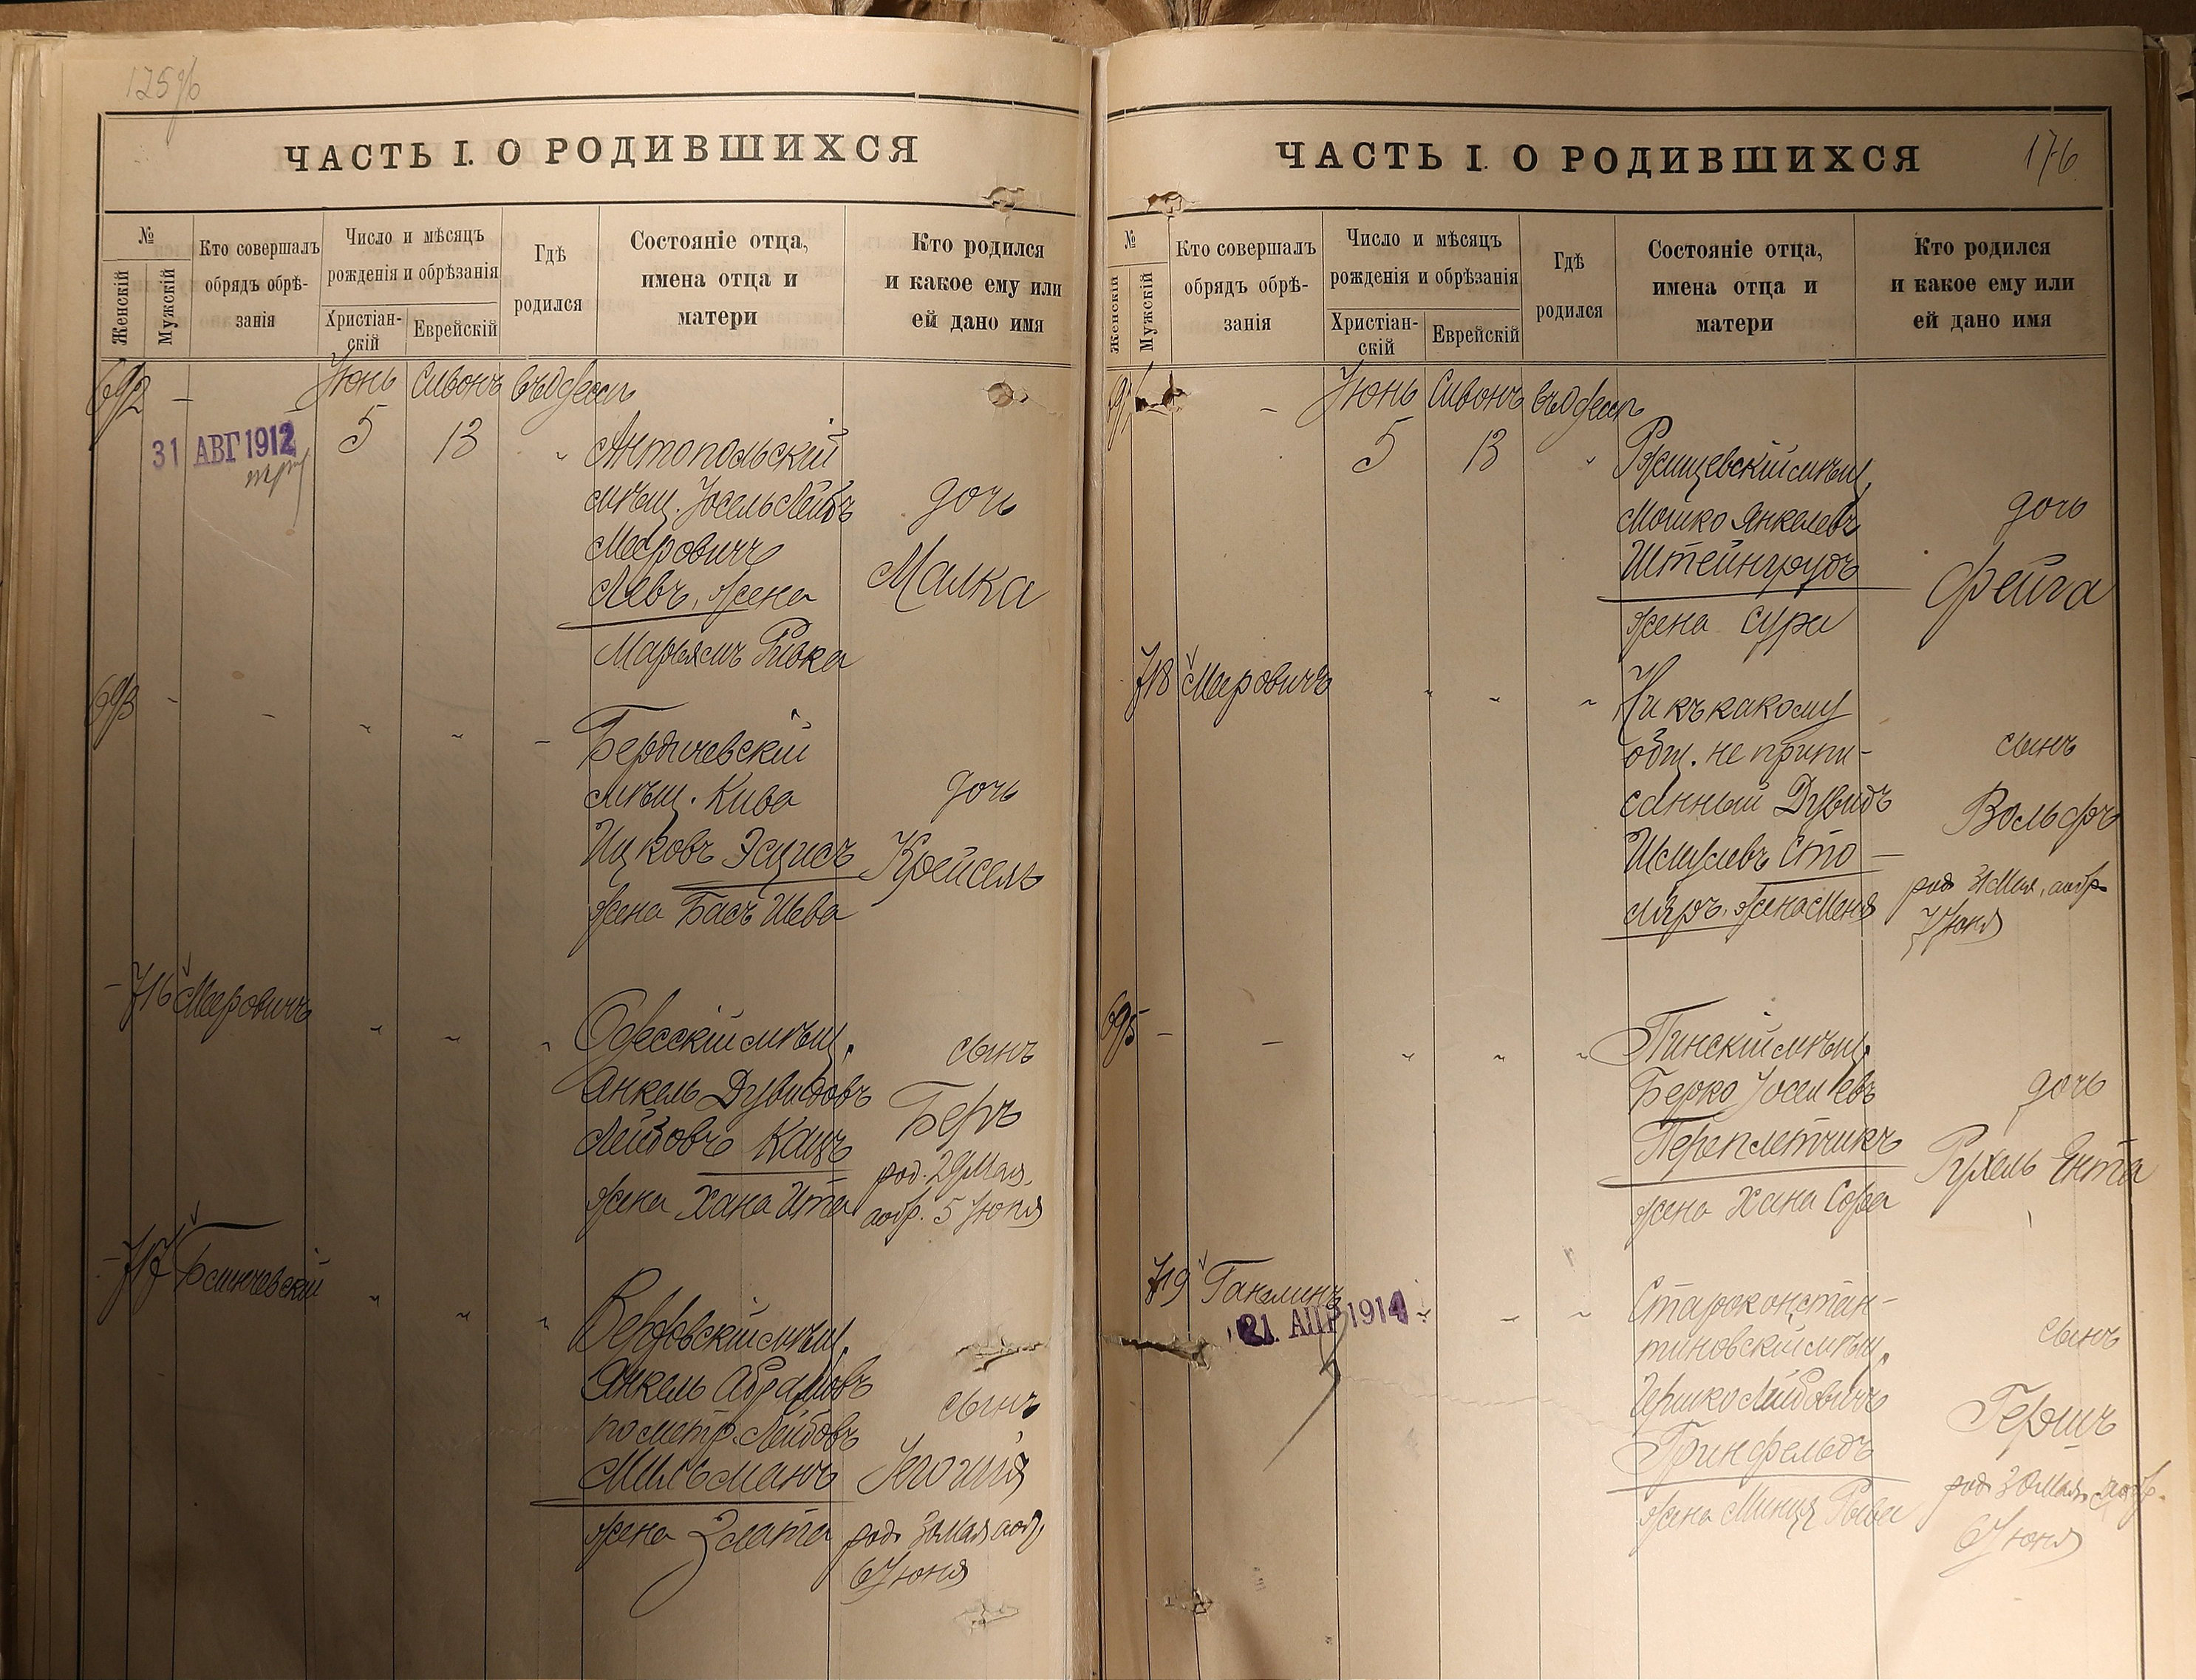 175 об
ЧАСТЬ I. О РОДИВШИХСЯ
№
Женскій
Мужскій
Кто совершалъ
обрядъ обрѣ-
занія
Число и мѣсяцъ
рожденія и обрѣзанія
Христіан-
скій
Еврейскій
Гдѣ
родился
Состояніе отца,
имена отца и
матери
Кто родился
и какое ему или
ей дано имя
692 - Іюнь Сивонъ въ Одессѣ
31 АВГ 1912
5 13 " Антопольскій
мѣщ. Іосель Лейбъ дочь
Меѣровичъ Малка
Левъ, жена
Марьямъ Ривка
693 - - " " - Бердичевскій
мѣщ. Кива дочь
Ицковъ Крейсель
жена Бася Шева
- 716 Меѣровичъ " " " Одесскій мѣщ. сынъ
Янкель Дувидовъ Беръ
Лейбовъ Кацъ род. 29 Мая,
жена Хана Ита аобр. 5 Іюня
- 717 " " " мѣщ.
Янкель Абрамовъ сынъ
по метр. Лейбовъ
Мильманъ
жена Злата род. 30 Мая аобр.
6 Іюня
ЧАСТЬ I. О РОДИВШИХСЯ
176
№
Женскій
Мужскій
Кто совершалъ
обрядъ обрѣ-
занія
Число и мѣсяцъ
рожденія и обрѣзанія
Христіан-
скій
Еврейскій
Гдѣ
родился
Состояніе отца,
имена отца и
матери
Кто родился
и какое ему или
ей дано имя
- - Іюнь Сивонъ въ Одессѣ
5 13 " Ржищевскій мѣщ.
Мошко Янкелевъ дочь
Штейнгрудъ Фейга
жена Сура
718 Меѣровичъ " " " Ни къ какому
общ. не припи- сынъ
санный Дувидъ Вольфъ
Шмулевъ Сто-
ляръ, жена Меня род 31 Мая, аобр.
7 Іюня
695 - - " " " Пинскій мѣщ.
Берко Іоселевъ дочь
Переплетчикъ Рухель Ента
жена Хана Сора
719 " " " Староконстан-
21. АПР 1914
тиновскій мѣщ. сынъ
Гершко Лейбовичъ Гершъ
Гринфельдъ
жена Минця род. 30 Мая, аобр.
6 Іюня